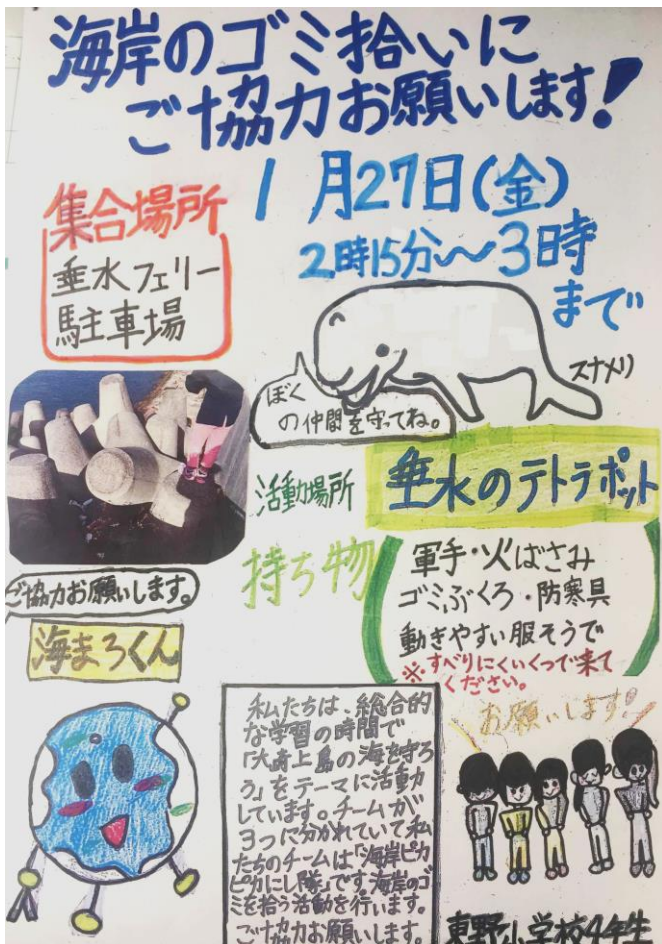 海岸のゴミ拾いに
ご協力お願いします!
1月27日(金)
2時15分〜3時
まで
集合場所
垂水フェリー
駐車場
スナメリ
ぼく
の仲間を守ってね。
活動場所
垂水のテトラポット
持ち物
軍手・火ばさみ
ゴミぶくろ・防寒具
動きやすい服そうで
※すべりにくいくつで来て
ください。
ご協力お願いします。
海まろくん
私たちは、総合的
な学習の時間で
「大崎上島の海を守ろ
う」をテーマに活動
しています。チームが
3つに分かれていて私
たちのチームは「海岸ピカ
ピカにし隊」です。海岸のゴ
ミを拾う活動を行います。
ご協力お願いします。
お願いします!
東野小学校4年生